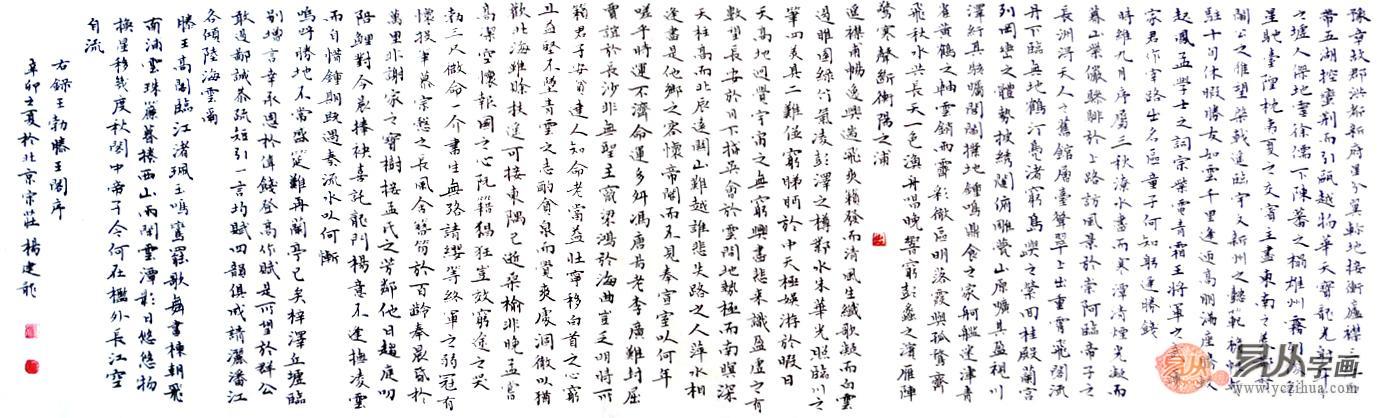 豫章故郡洪都新府星分翼軫地接衡廬襟三江
帶五湖控蠻荊而引甌越物華天寶龍光射牛
之墟人傑地靈徐孺下陳蕃之榻雄州霧列
星馳臺隍枕夷夏之交賓主盡東南之美
閻公之雅望棨戟遙臨宇文新州之懿範襜
駐十旬休暇勝友如雲千里逢迎高朋滿座騰蛟
起鳳孟學士之詞宗紫電青霜王將軍之
家君作宰路出名區童子何知躬逢勝餞
時維九月序屬三秋潦水盡而寒潭清煙光凝而
暮山紫儼驂騑於上路訪風景於崇阿臨帝子之
長洲得天人之舊館層臺聳翠上出重霄飛閣流
丹下臨無地鶴汀鳧渚窮島嶼之縈回桂殿蘭宮
列岡巒之體勢披繡闥俯雕甍山原曠其盈視川
澤紆其駭矚閭閻撲地鐘鳴鼎食之家舸艦迷津青
雀黃鶴之軸雲銷雨霽彩徹區明落霞與孤鶩齊
飛秋水共長天一色漁舟唱晚響窮彭蠡之濱雁陣
驚寒聲斷衡陽之浦
遙襟甫暢逸興遄飛爽籟發而清風生纖歌凝而白雲
遏睢園綠竹氣凌彭澤之樽鄴水朱華光照臨川之
筆四美具二難並窮睇眄於中天極娛遊於暇日
天高地迥覺宇宙之無窮興盡悲來識盈虛之有
數望長安於日下指吳會於雲間地勢極而南溟深
天柱高而北辰遠關山難越誰悲失路之人萍水相
逢盡是他鄉之客懷帝閽而不見奉宣室以何年
嗟乎時運不濟命運多舛馮唐易老李廣難封屈
賈誼於長沙非無聖主竄梁鴻於海曲豈乏明時所
賴君子安貧達人知命老當益壯寧移白首之心窮
且益堅不墜青雲之志酌貪泉而覺爽處涸轍以猶
歡北海雖賒扶搖可接東隅已逝桑榆非晚孟嘗
高潔空懷報國之心阮籍猖狂豈效窮途之哭
勃三尺微命一介書生無路請纓等終軍之弱冠有
懷投筆慕宗愨之長風舍簪笏於百齡奉晨昏於
萬里非謝家之寶樹接孟氏之芳鄰他日趨庭叨
陪鯉對今晨捧袂喜託龍門楊意不逢撫凌雲
而自惜鍾期既遇奏流水以何慚
嗚呼勝地不常盛筵難再蘭亭已矣梓澤丘墟臨
別贈言幸承恩於偉餞登高作賦是所望於群公
敢竭鄙誠恭疏短引一言均賦四韻俱成請灑潘江
各傾陸海雲爾
滕王高閣臨江渚珮玉鳴鸞罷歌舞畫棟朝飛
南浦雲珠簾暮捲西山雨閒雲潭影日悠悠物
換星移幾度秋閣中帝子今何在檻外長江空
自流
右錄王勃滕王閣序
辛卯之夏於北京宗莊楊建龍
易从字画
www.yczihua.com